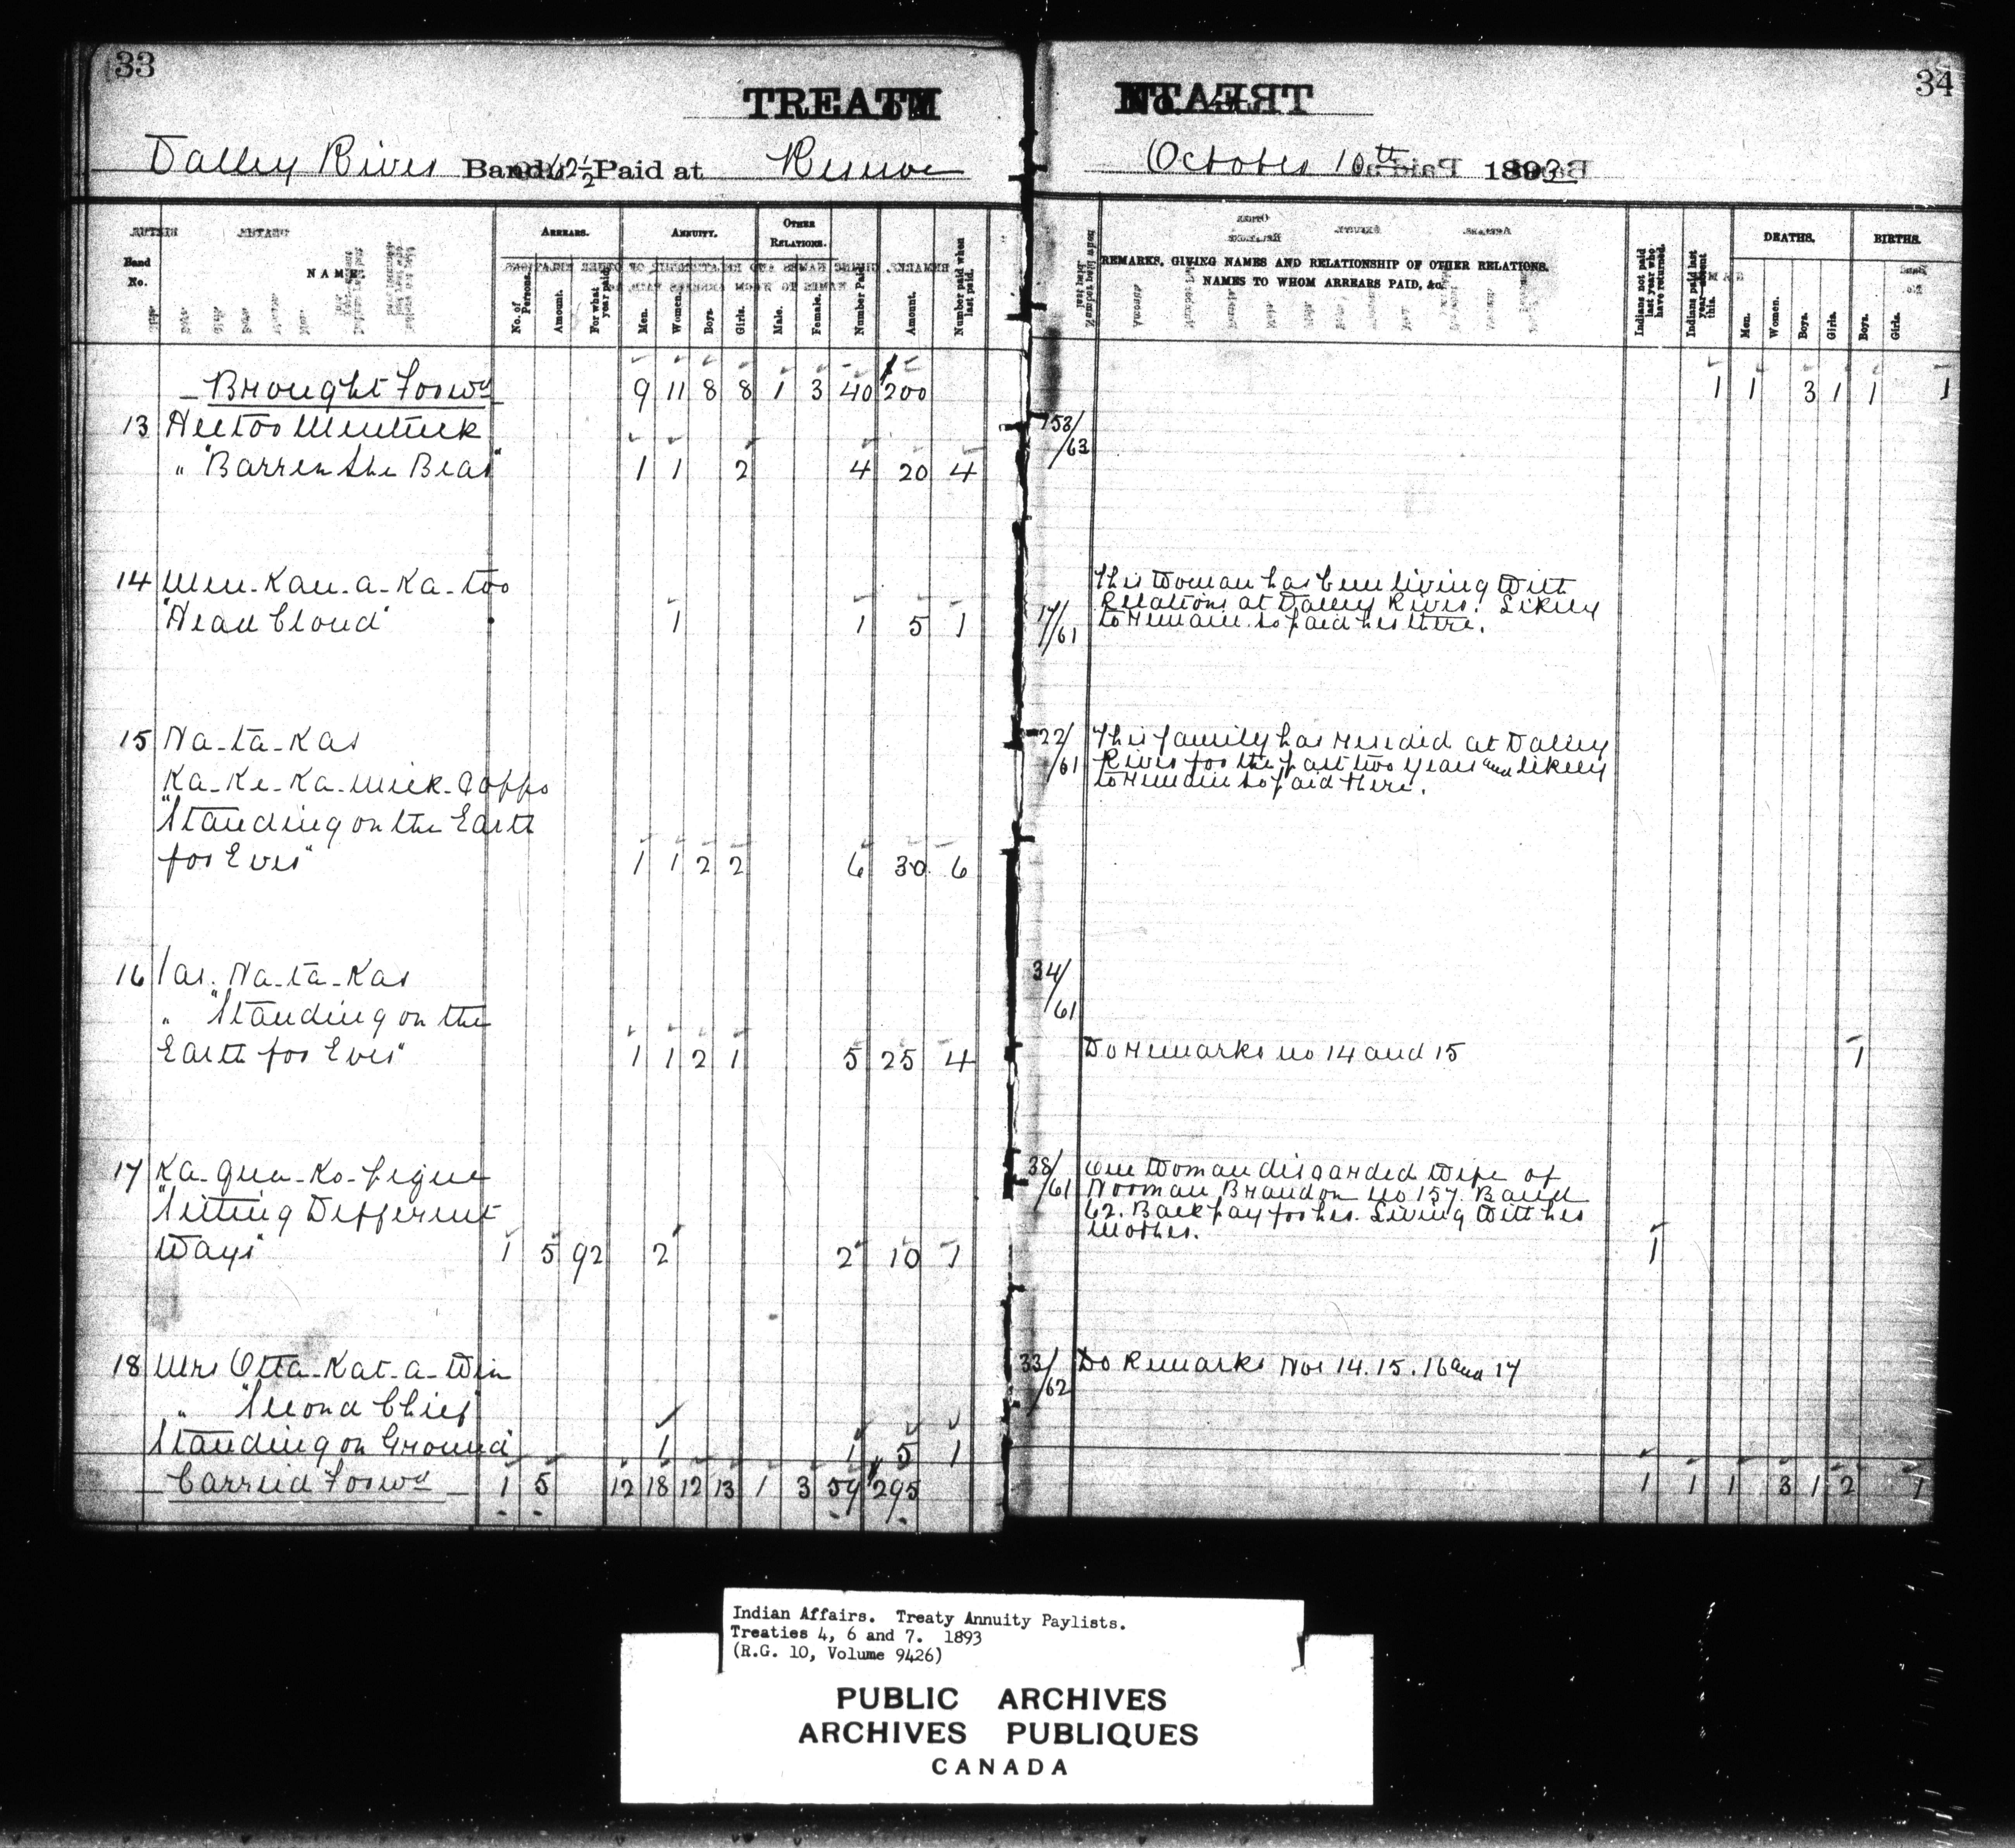 33
TREATY
Valley River Band 62½ Paid at Reserve
Band No.
NAME.
ARREARS.
No. of Persons.
Amount.
For what year paid.
ANNUITY.
Men.
Women.
Boys.
Girls.
OTHER RELATIONS.
Male.
Female.
Number Paid.
Amount.
Number paid when last paid.
Brought Forwd 9 11 8 8 1 3 40 $200
13 Hector
" "Barren she Bear" 1 1 2 4 20 4
14 Men-Kau-a-Ka-too
"Head Cloud" 1 1 5 1
15 Na-ta-Kas
Ka-Ke-Ka-mick-Cappo
"Standing on the Earth
for Ever" 1 1 2 2 6 30 6
16 Jas. Na-ta-Kas
" "Standing on the
Earth for Ever" 1 1 2 1 5 25 4
17 Ka-Qua-Ko-peque
"Sitting Different
Ways" 1 5 92 2 2 10 1
18 Mrs Otta-Kat-a-Win
" "Second Chief"
Standing on Ground 1 1 5 1
Carried Forwd 1 5 12 18 12 13 1 3 59 $295
34
TREATY No. 4
October 10th 1893
REMARKS, GIVING NAMES AND RELATIONSHIP OF OTHER RELATIONS.
NAMES TO WHOM ARREARS PAID, &c.
Indians not paid last year who have returned.
Indians paid last year absent this.
DEATHS.
Men.
Women.
Boys.
Girls.
BIRTHS.
Boys.
Girls.
1 1 3 1 1 1
153/63
17/61
This Woman has been living with
Relations at Valley River. Likely
to remain so paid her there.
22/61
This family has resided at Valley
River for the past two years and likely
to remain so paid there.
34/61
Do Remarks no 14 and 15 1
38/61
One Woman discarded Wife of
Norman Brandon no 157 Band
62. Back pay for her. Living with her
Mother. 1
33/62
Do Remarks Nos 14. 15. 16 and 17
1 1 1 3 1 2 1
Indian Affairs. Treaty Annuity Paylists.
Treaties 4, 6 and 7. 1893
(R.G. 10, Volume 9426)
PUBLIC ARCHIVES
ARCHIVES PUBLIQUES
CANADA